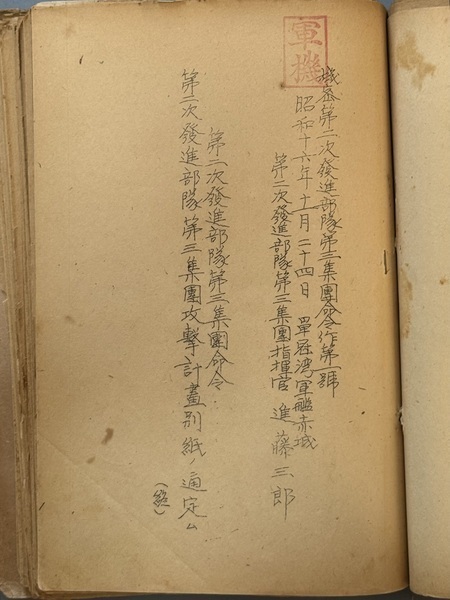 軍機
機密第二次發進部隊第三集團命令作第一號
昭和十六年十一月二十四日 單冠湾軍艦赤城
第二次發進部隊第三集團指揮官 進藤三郎
第二次發進部隊第三集團命令
第二次發進部隊第三集團攻撃計畫別紙ノ通定ム
(終)